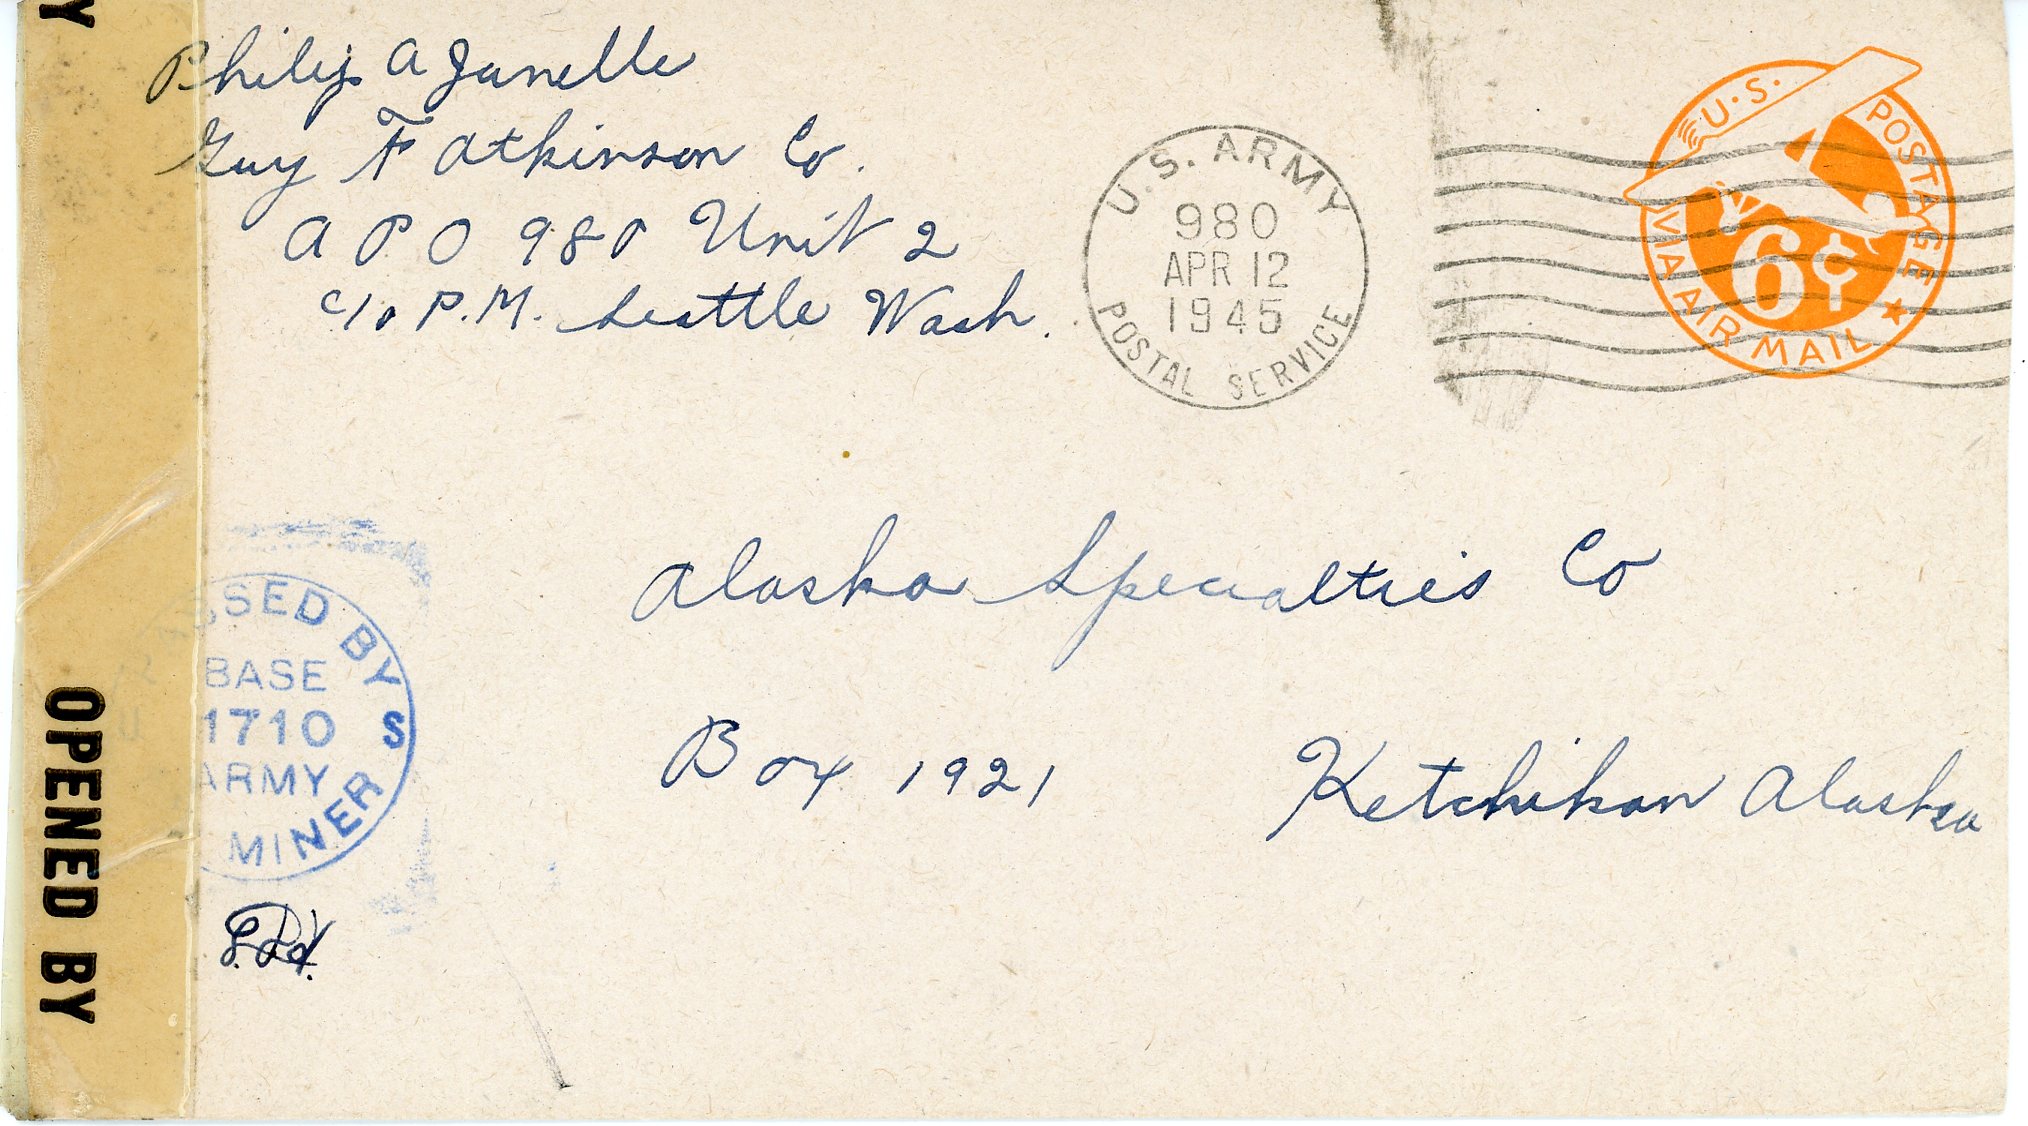 Philip A Janelle
Guy F Atkinson Co.
A P O 980 Unit 2
c/o P.M. Seattle Wash.
U.S. ARMY
980
APR 12
1945
POSTAL SERVICE
U.S. POSTAGE
6¢
VIA AIR MAIL
Alaska Specialties Co
Box 1921 Ketchikan Alaska
PASSED BY
BASE
1710
ARMY
MINER
S
OPENED BY
Y